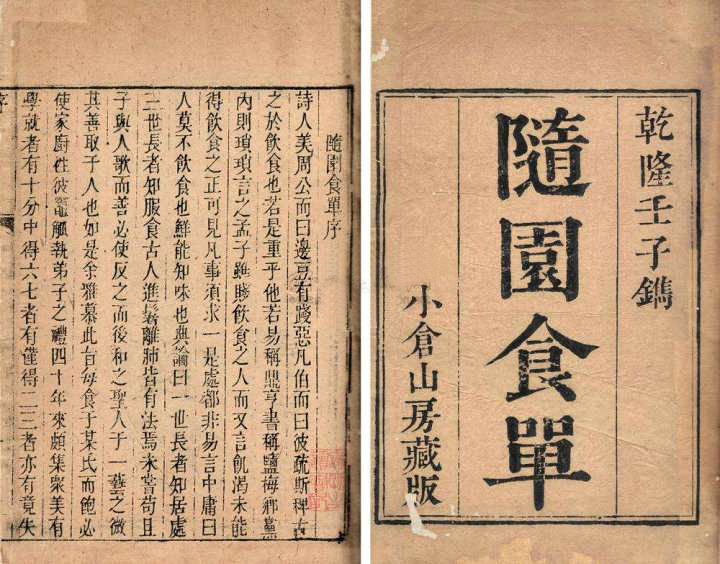 乾隆壬子鐫
隨園食單
小倉山房藏版
隨園食單序
詩人美周公而曰籩豆有踐惡凡伯而曰彼疏斯稗古
之於飲食也若是重乎他若易稱鼎亨書稱鹽梅鄉黨
內則瑣瑣言之孟子雖賤飲食之人而又言飢渴未能
得飲食之正可見凡事須求一是處都非易言中庸曰
人莫不飲食也鮮能知味也典論曰一世長者知居處
三世長者知服食古人進鬐離肺皆有法焉未嘗苟且
子與人歌而善必使反之而後和之聖人于一藝之微
其善取于人也如是余雅慕此旨每食于某氏而飽必
使家廚往彼竈觚執弟子之禮四十年來頗集眾美有
學就者有十分中得六七者有僅得二三者亦有竟失